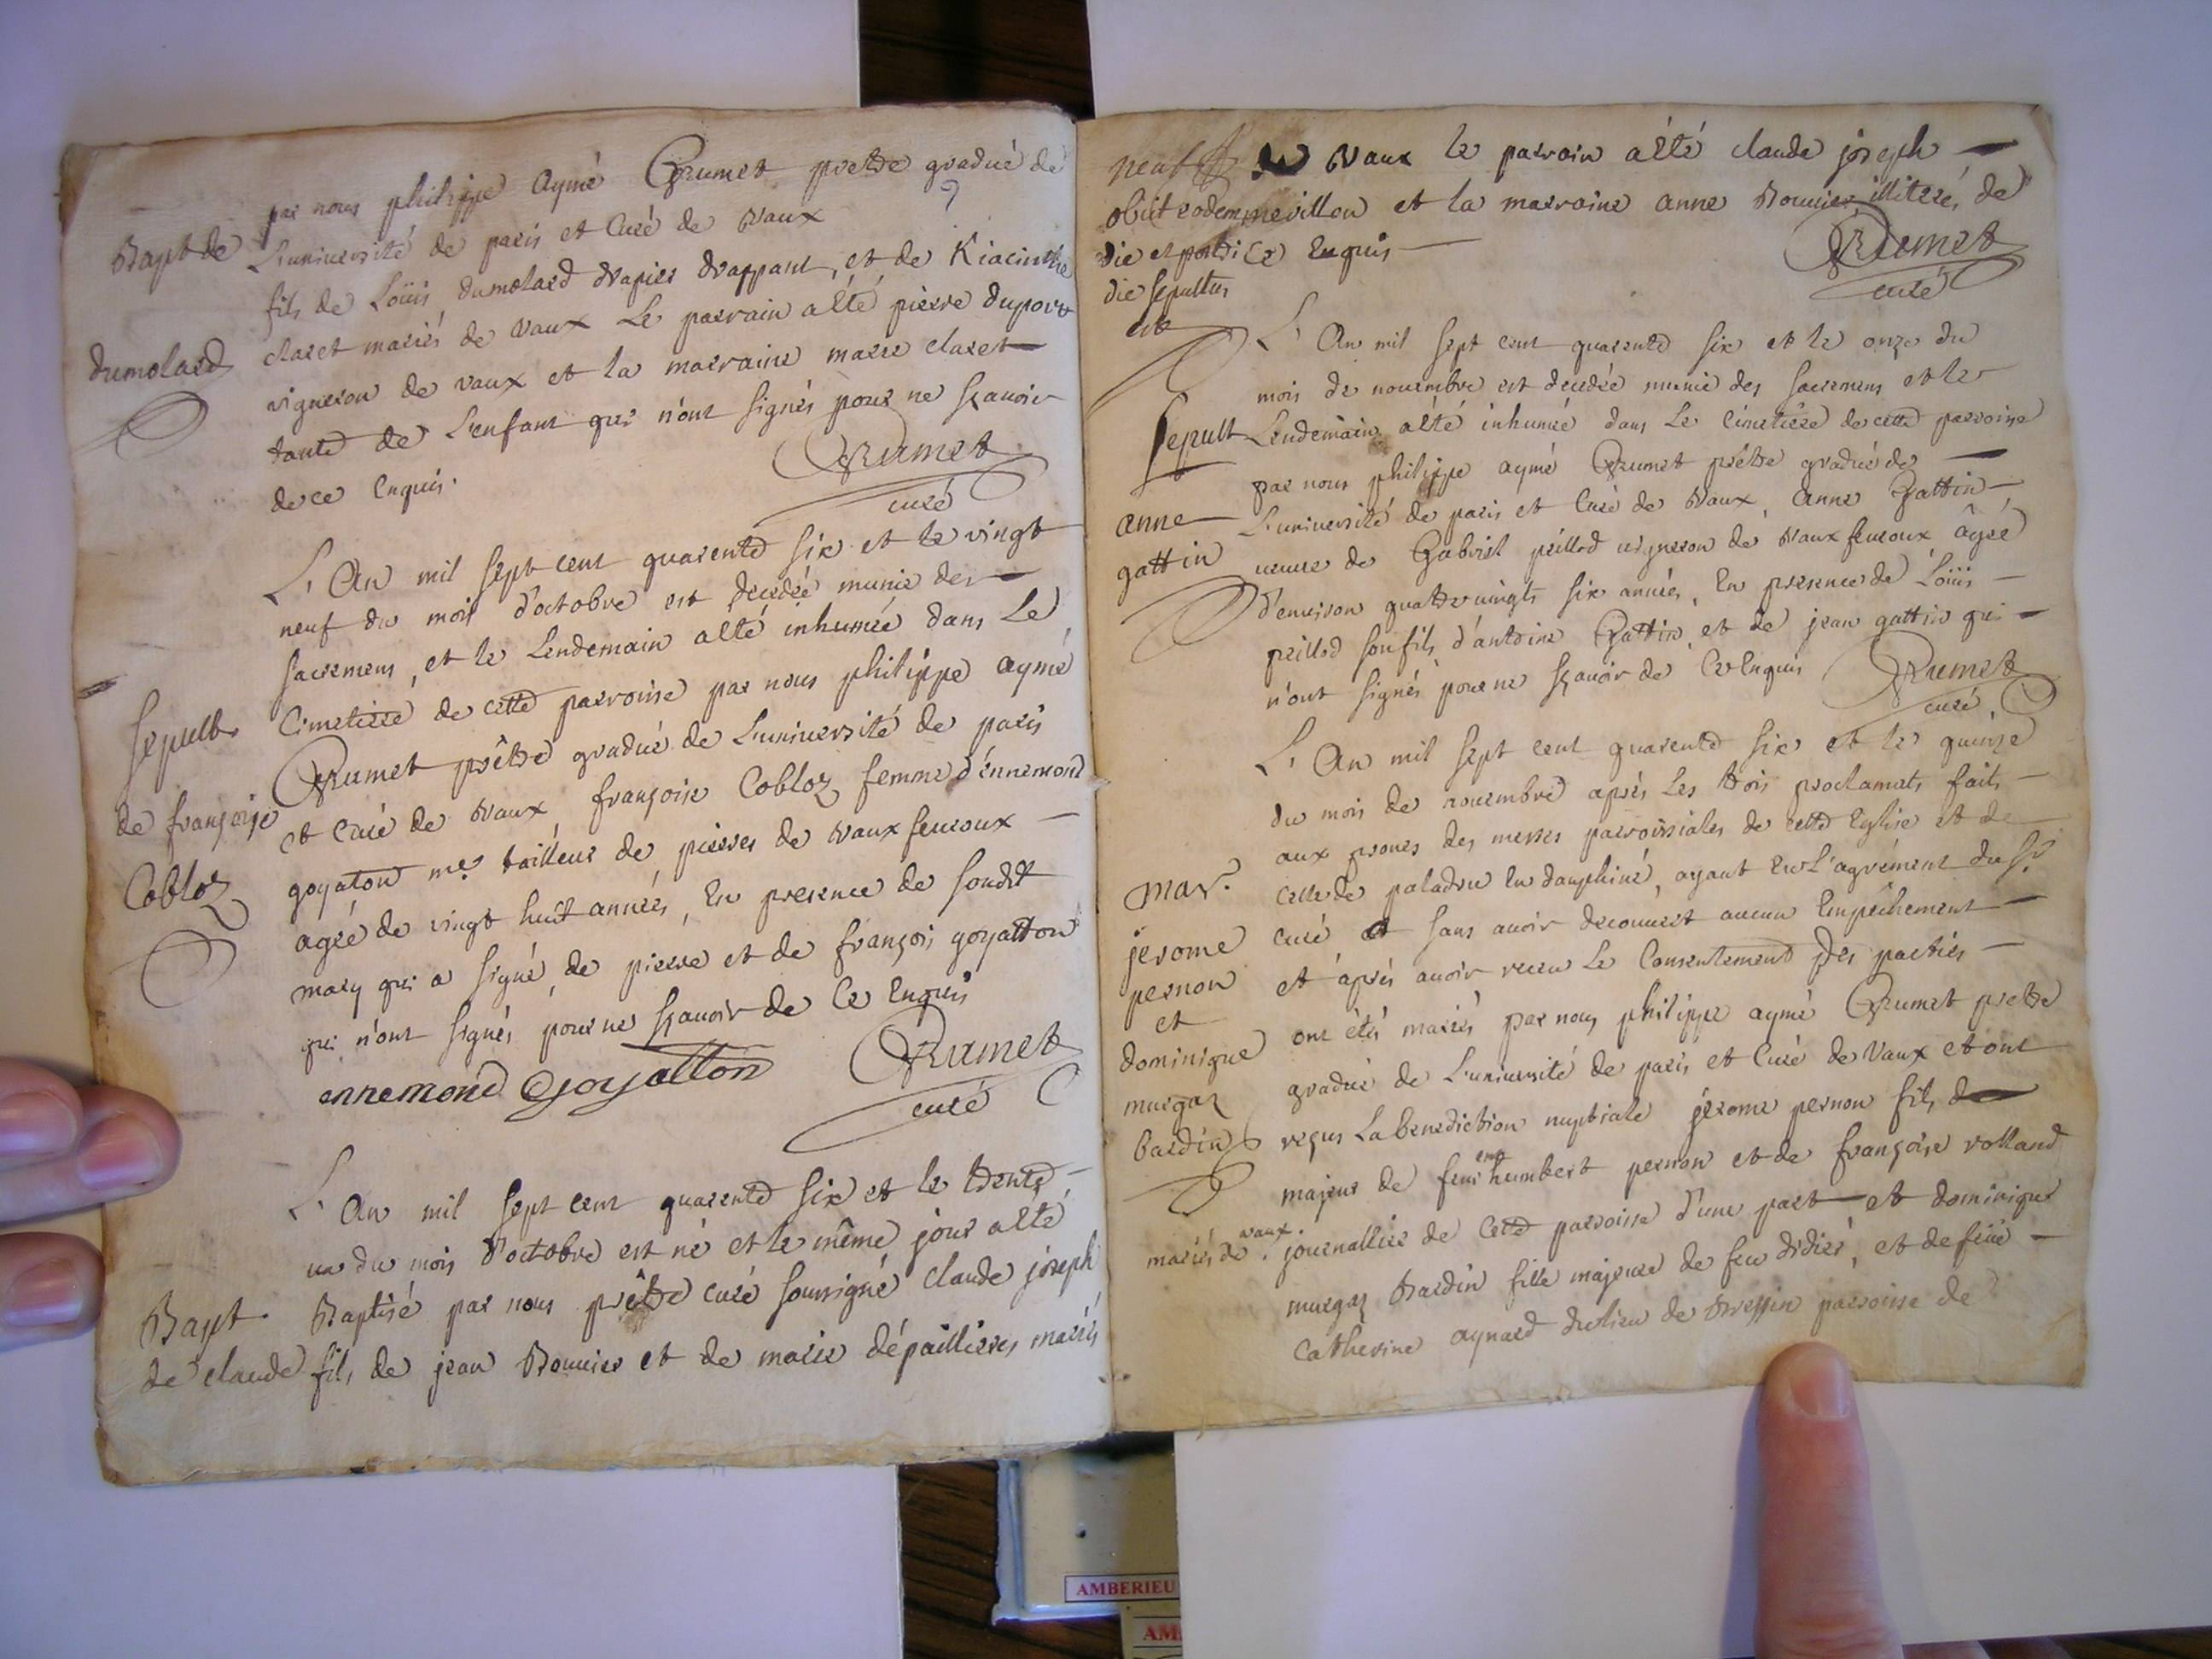 par nous philippe Aymé Grumet pretre gradué de
Bapt de L'université de paris et Curé de Vaux
fils de Loüis dumolard drapier drappant, et de Kiacinthe
dumolard claret mariés de vaux Le parrain a été pierre duport
vigneron de vaux et la marraine marie claret
tante de L'enfant qui n'ont signés pour ne sçavoir
de ce Enquis.
Grumet
curé
L'An mil sept cent quarente six et le vingt
neuf du mois d'octobre est decedée munie des
sacremens, et le Lendemain a été inhumée dans Le
sepult. Cimetierre de cette parroisse par nous philippe aymé
Grumet prêtre gradué de L'université de paris
de françoise et Curé de Vaux françoise Cobloz femme d'énnemond
Cobloz goyaton me. tailleur de pierres de Vaux fevroux
agée de vingt huit années, En presence de sondit
mary qui a signé, de pierre et de françois goyatton
qui n'ont signés pour ne sçavoir de Ce Enquis
ennemond Goyatton
Grumet
curé
L'An mil sept cent quarente six et le trente
un du mois d'octobre est né et le même jour a été
Bapt. Baptisé par nous prêtre curé soussigné claude joseph
de claude fils de jean Bonnier et de marie dépaillieres mariés
de vaux le parrain a été claude joseph
obiit eodem nevillon et la marraine anne Bonnier illiteré, de
die et postridie Ce Enquis
sepultus
est
Grumet
curé
L'An mil sept cent quarente six et le onze du
mois de novembre est decedée munie des sacremens et le
Sepult Lendemain a été inhumée dans Le Cimetiere de cette parroisse
par nous philippe aymé Grumet prêtre gradué de
anne L'université de paris et Curé de Vaux, Anne Gattin
gattin veuve de Gabriel peillod vigneron de Vaux fevroux âgée
d'environ quattrevingts six années, En presence de Loüis
peillod son fils, d'antoine Gattin, et de jean gattin qui
n'ont signés pour ne sçavoir de Ce Enquis
Grumet
curé
L'An mil sept cent quarente six et le quinze
du mois de novembre après Les trois proclamats faits
aux prones des messes parroissiales de cette Eglise et de
mar. celle de paladru En dauphiné, ayant Eu L'agrément du Sr.
jerome curé et sans avoir decouvert aucun Empêchement
pernon et après avoir receu Le Consentement des parties
et
dominique ont étés mariés par nous philippe aymé Grumet pretre
murgaz gradué de L'université de paris et Curé de Vaux et ont
bardin reçus La benediction nuptiale jérome pernon fils
majeur de feu humbert pernon et de françoise rolland
mariés de vaux. journallier de Cette parroisse d'une part et dominique
murgaz Bardin fille majeure de feu didier, et de feüe
Catherine aynard du lieu de Bressin parroisse de
AMBERIEU
AM